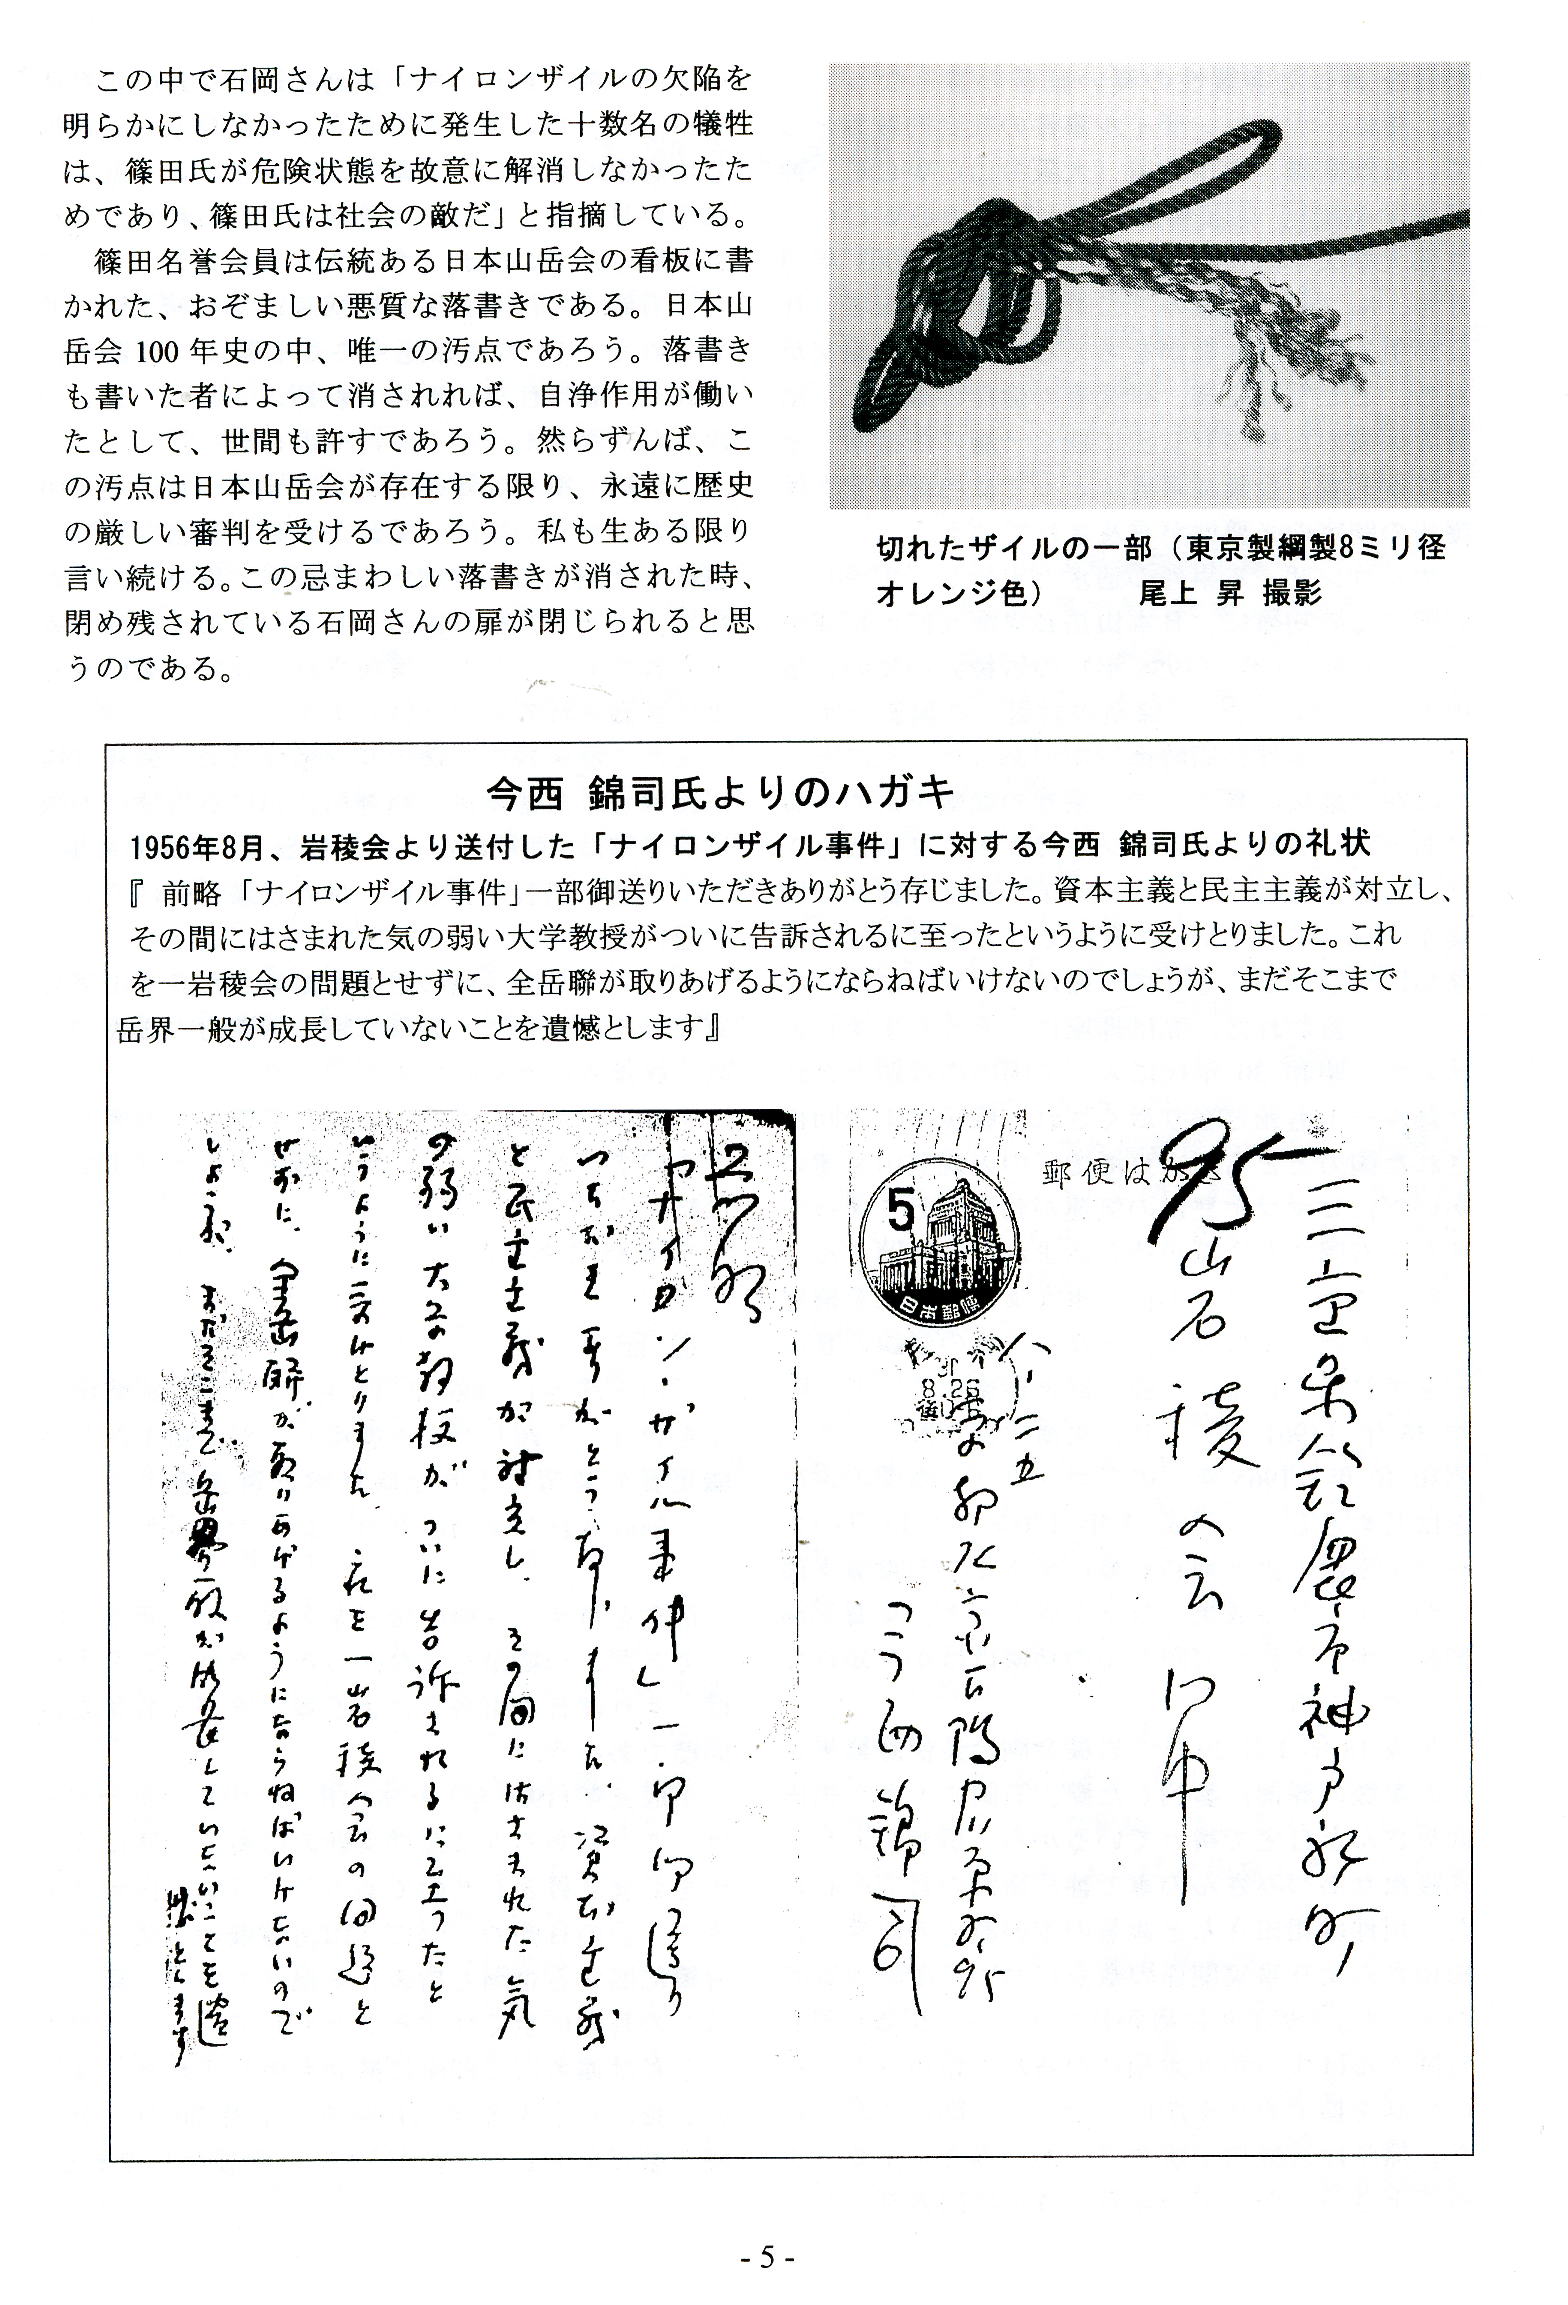 この中で石岡さんは「ナイロンザイルの欠陥を
明らかにしなかったために発生した十数名の犠牲
は、篠田氏が危険状態を故意に解消しなかったた
めであり、篠田氏は社会の敵だ」と指摘している。
篠田名誉会員は伝統ある日本山岳会の看板に書
かれた、おぞましい悪質な落書きである。日本山
岳会 100 年史の中、唯一の汚点であろう。落書き
も書いた者によって消されれば、自浄作用が働い
たとして、世間も許すであろう。然らずんば、こ
の汚点は日本山岳会が存在する限り、永遠に歴史
の厳しい審判を受けるであろう。私も生ある限り
言い続ける。この忌まわしい落書きが消された時、
閉め残されている石岡さんの扉が閉じられると思
うのである。
切れたザイルの一部（東京製綱製8ミリ径
オレンジ色）　　　尾上 昇 撮影
今西 錦司氏よりのハガキ
1956年8月、岩稜会より送付した「ナイロンザイル事件」に対する今西 錦司氏よりの礼状
『 前略 「ナイロンザイル事件」一部御送りいただきありがとう存じました。資本主義と民主主義が対立し、
その間にはさまれた気の弱い大学教授がついに告訴されるに至ったというように受けとりました。これ
を一岩稜会の問題とせずに、全岳聯が取りあげるようにならねばいけないのでしょうが、まだそこまで
岳界一般が成長していないことを遺憾とします』
郵便はがき
95
三重県鈴鹿市神戸
岩稜会 御中
5
日本郵便
8.26
八・二五
95
今西錦司
前略
「ナイロン・ザイル事件」一部御送り
いただき有がとう存じました。資本主義
と民主主義が対立し、その間にはさまれた気
の弱い大学教授がついに告訴されるに至ったと
いうように受けとりました。これを一岩稜会の問題と
せずに、全岳聯が取りあげるようにならねばいけないので
しょうが、まだそこまで岳界一般が成長していないことを遺
憾とします
- 5 -